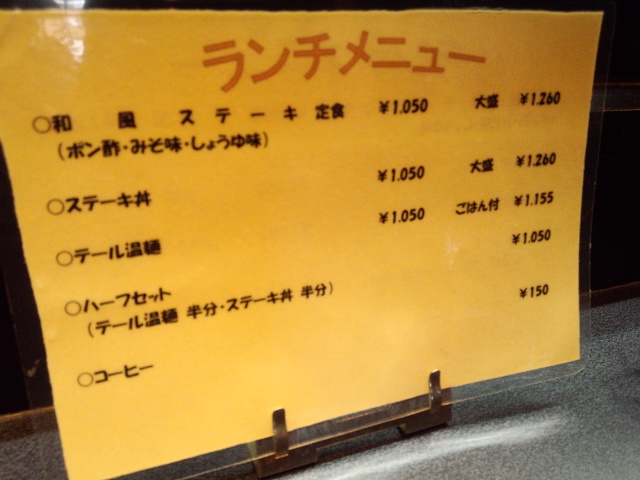 ランチメニュー
○和風ステーキ定食 ¥1.050 大盛 ¥1.260
（ポン酢・みそ味・しょうゆ味）
○ステーキ丼 ¥1.050 大盛 ¥1.260
○テール温麺 ¥1.050 ごはん付 ¥1.155
○ハーフセット ¥1.050
（テール温麺 半分・ステーキ丼 半分）
○コーヒー ¥150